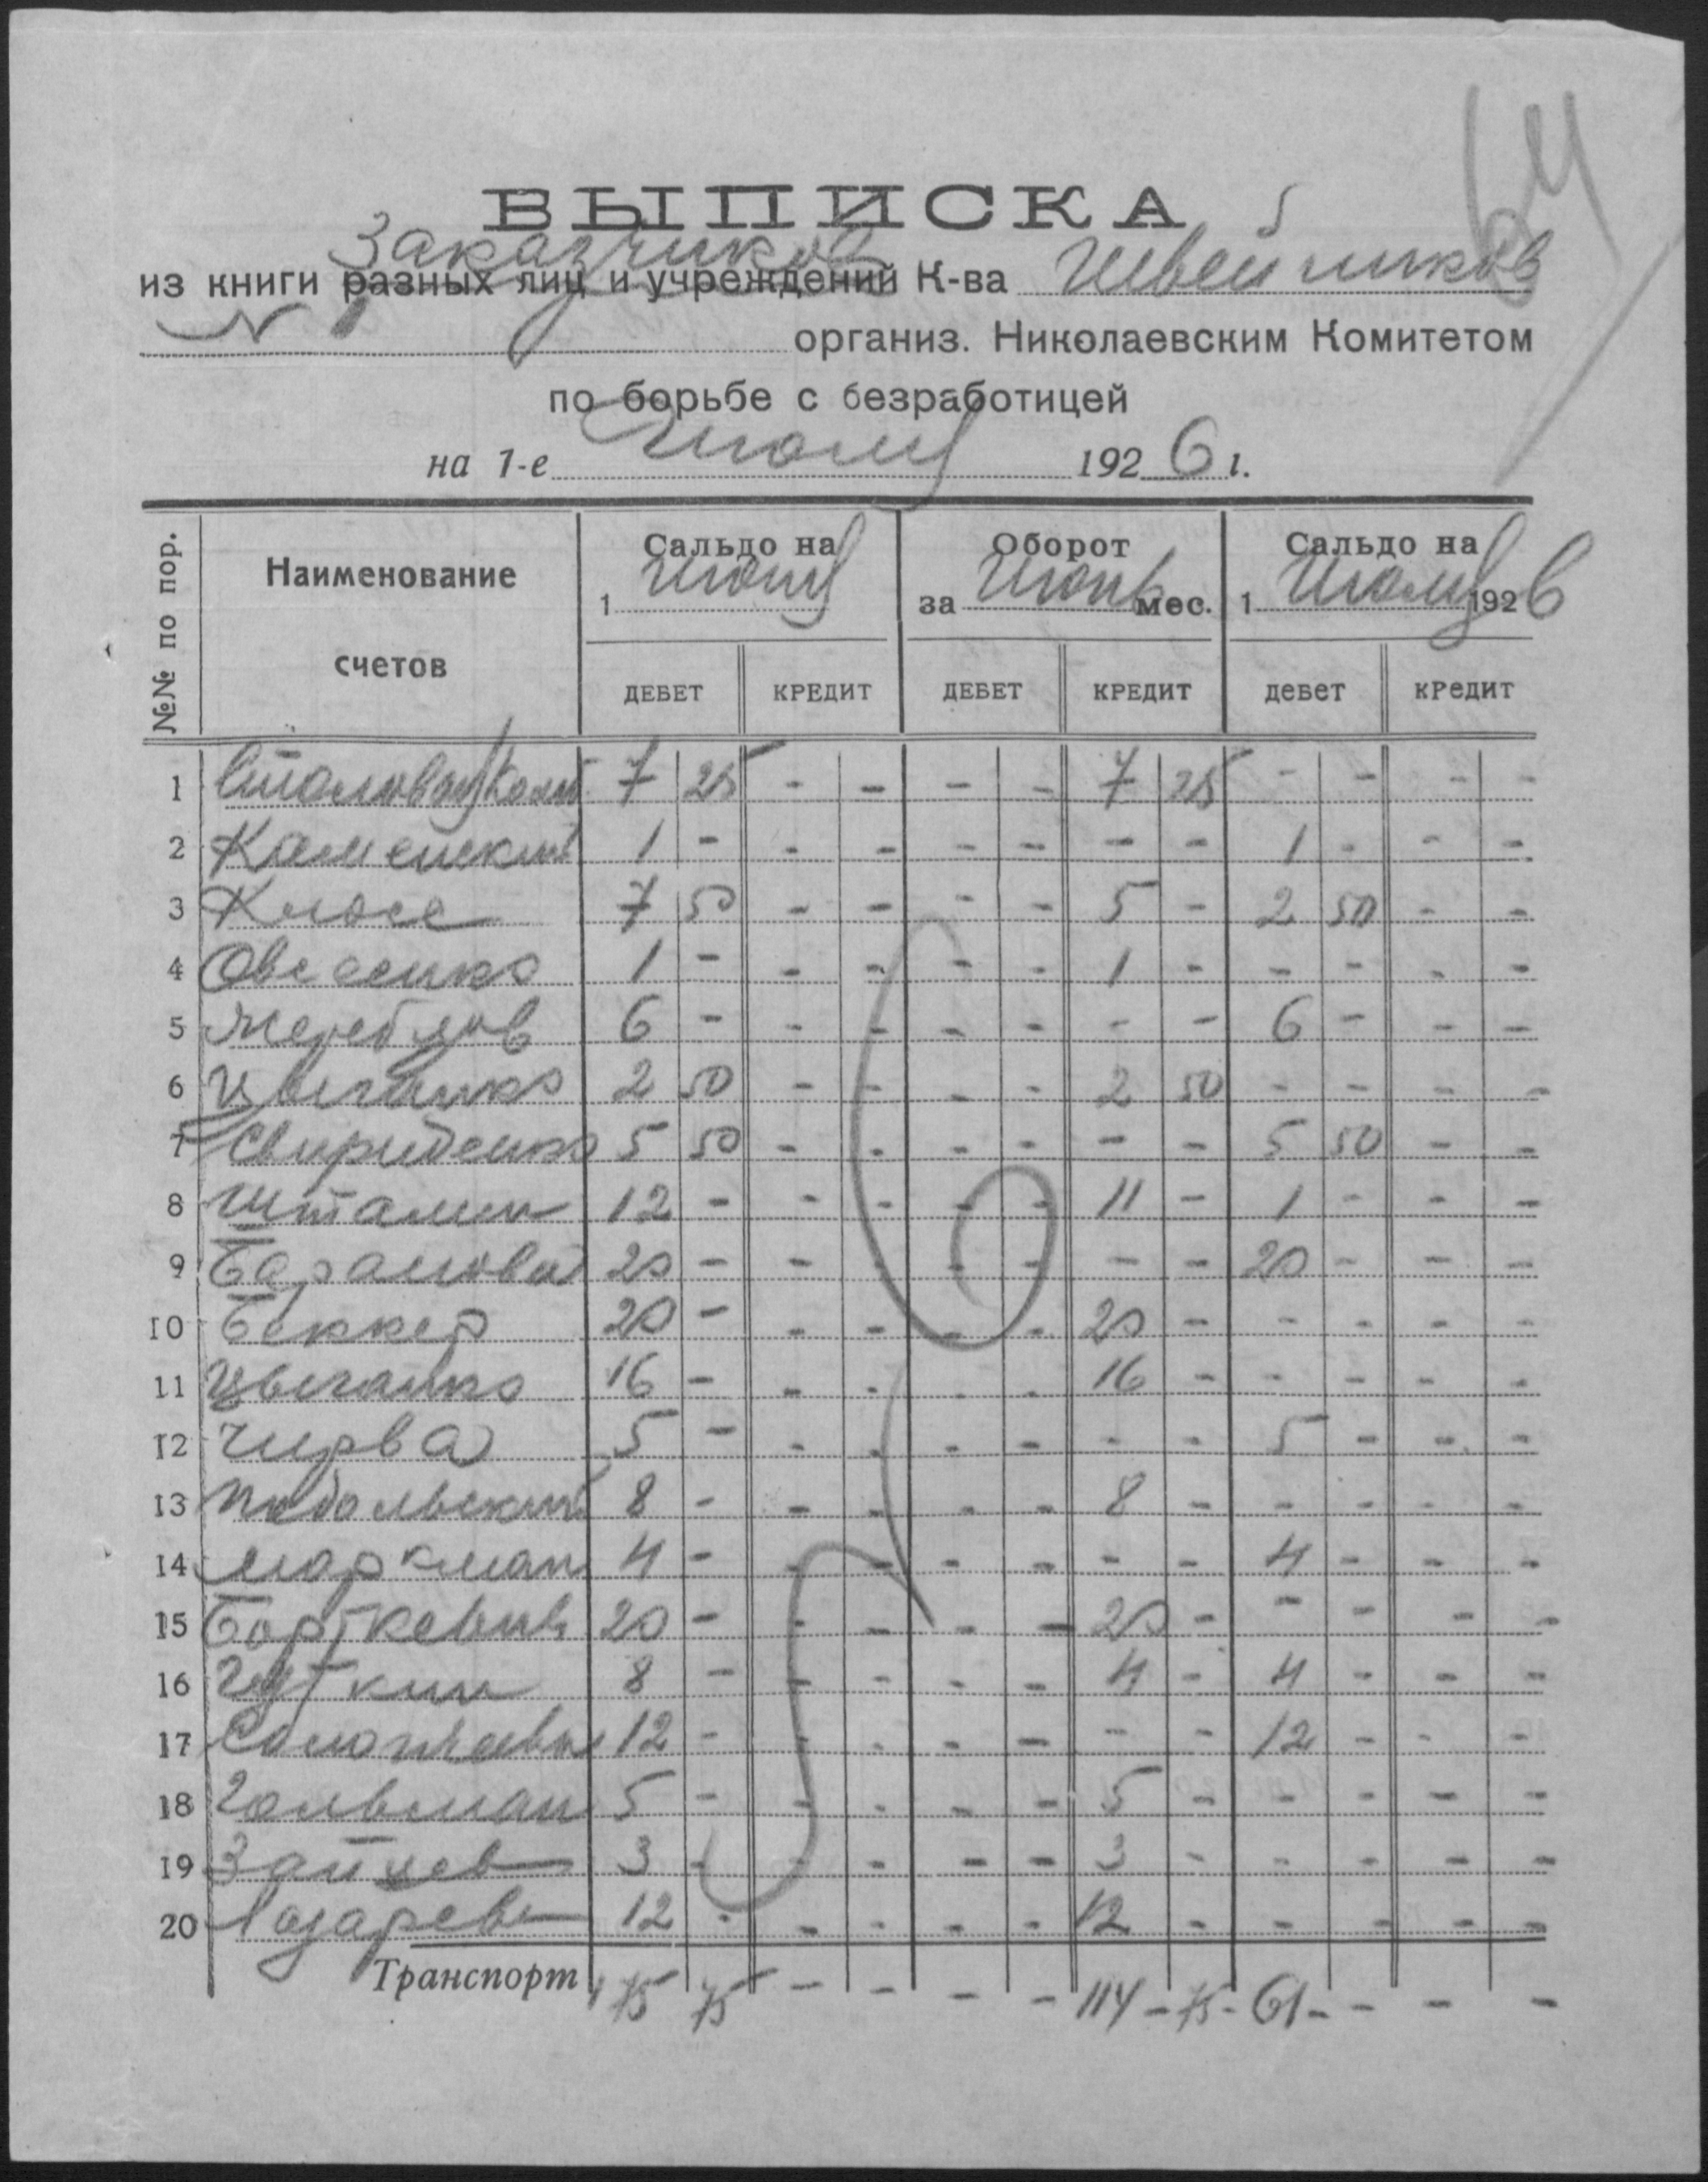 64
ВЫПИСКА
Заказчиков
из книги разных лиц и учреждений К-ва Швейников
N 1 организ. Николаевским Комитетом
по борьбе с безработицей
на 1-е Июля 1926 г.
№№ по пор. Наименование счетов Сальдо на 1 Июня Оборот за Июнь мес. Сальдо на 1 Июля 1926
ДЕБЕТ КРЕДИТ ДЕБЕТ КРЕДИТ ДЕБЕТ КРЕДИТ
1 Столовая 7 25 - - - - 7 25 - - - -
2 Каменский 1 - - - - - - - 1 - - -
3 Клосс 7 50 - - - - 5 - 2 50 - -
4 Овсеенко 1 - - - - - 1 - - - - -
5 Жеребцов 6 - - - - - - - 6 - - -
6 Цыганко 2 50 - - - - 2 50 - - - -
7 Свириденко 5 50 - - - - - - 5 50 - -
8 Шталин 12 - - - - - 11 - 1 - - -
9 Баранова 20 - - - - - - - 20 - - -
10 Беккер 20 - - - - - 20 - - - - -
11 Цыганко 16 - - - - - 16 - - - - -
12 Чирва 5 - - - - - - - 5 - - -
13 Подольский 8 - - - - - 8 - - - - -
14 Маркман 4 - - - - - - - 4 - - -
15 Борткевич 20 - - - - - 20 - - - - -
16 Гуткин 8 - - - - - 4 - 4 - - -
17 12 - - - - - - - 12 - - -
18 Гольман 5 - - - - - 5 - - - - -
19 Зайцев 3 - - - - - 3 - - - - -
20 Лазарев 12 - - - - - 12 - - - - -
Транспорт 175 75 - - - - 114 - 75 - 61 - - - -